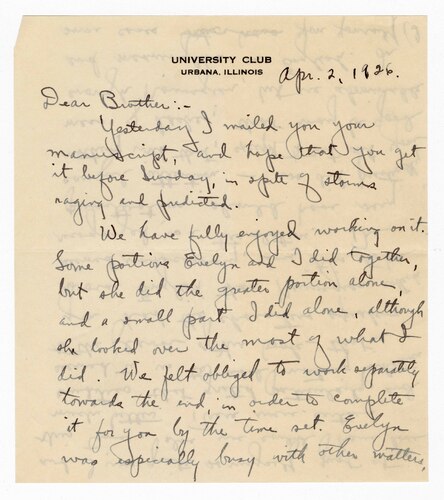 UNIVERSITY CLUB
URBANA, ILLINOIS
Apr. 2, 1926.
Dear Brother:-
Yesterday I mailed you your
manuscript, and hope that you get
it before Sunday, in spite of storms
raging and predicted.
We have fully enjoyed working on it.
Some portions Evelyn and I did together,
but she did the greater portion alone,
and a small part I did alone, although
she looked over the most of what I
did. We felt obliged to work separately
towards the end, in order to complete
it for you by the time set. Evelyn
was especially busy with other matters,